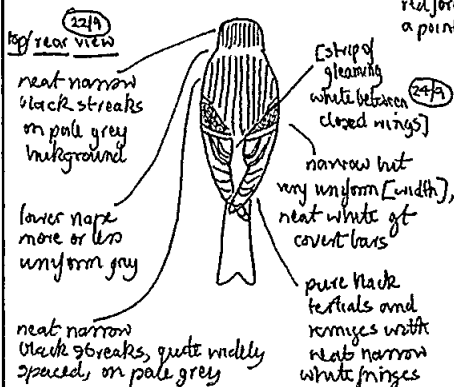 22/9
top/rear view
neat narrow
black streaks
on pale grey
background
lower nape
more or less
uniform grey
neat narrow
black streaks, quite widely
spaced, on pale grey
red for
a point
[strip of
gleaming
white between
closed wings]
24/9
narrow but
very uniform [width],
neat white gt
covert bars
pure black
tertials and
remiges with
neat narrow
white fringes